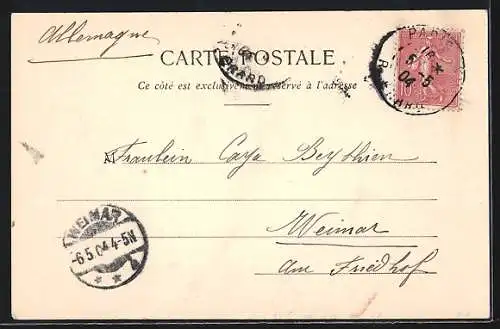 Allemagne
CARTE POSTALE
Ce côté est exclusivement réservé à l'adresse
PARIS
5
04
10
Fräulein Caya Beythien
Weimar
am Friedhof
WEIMAR
-6.5.04.4-5N